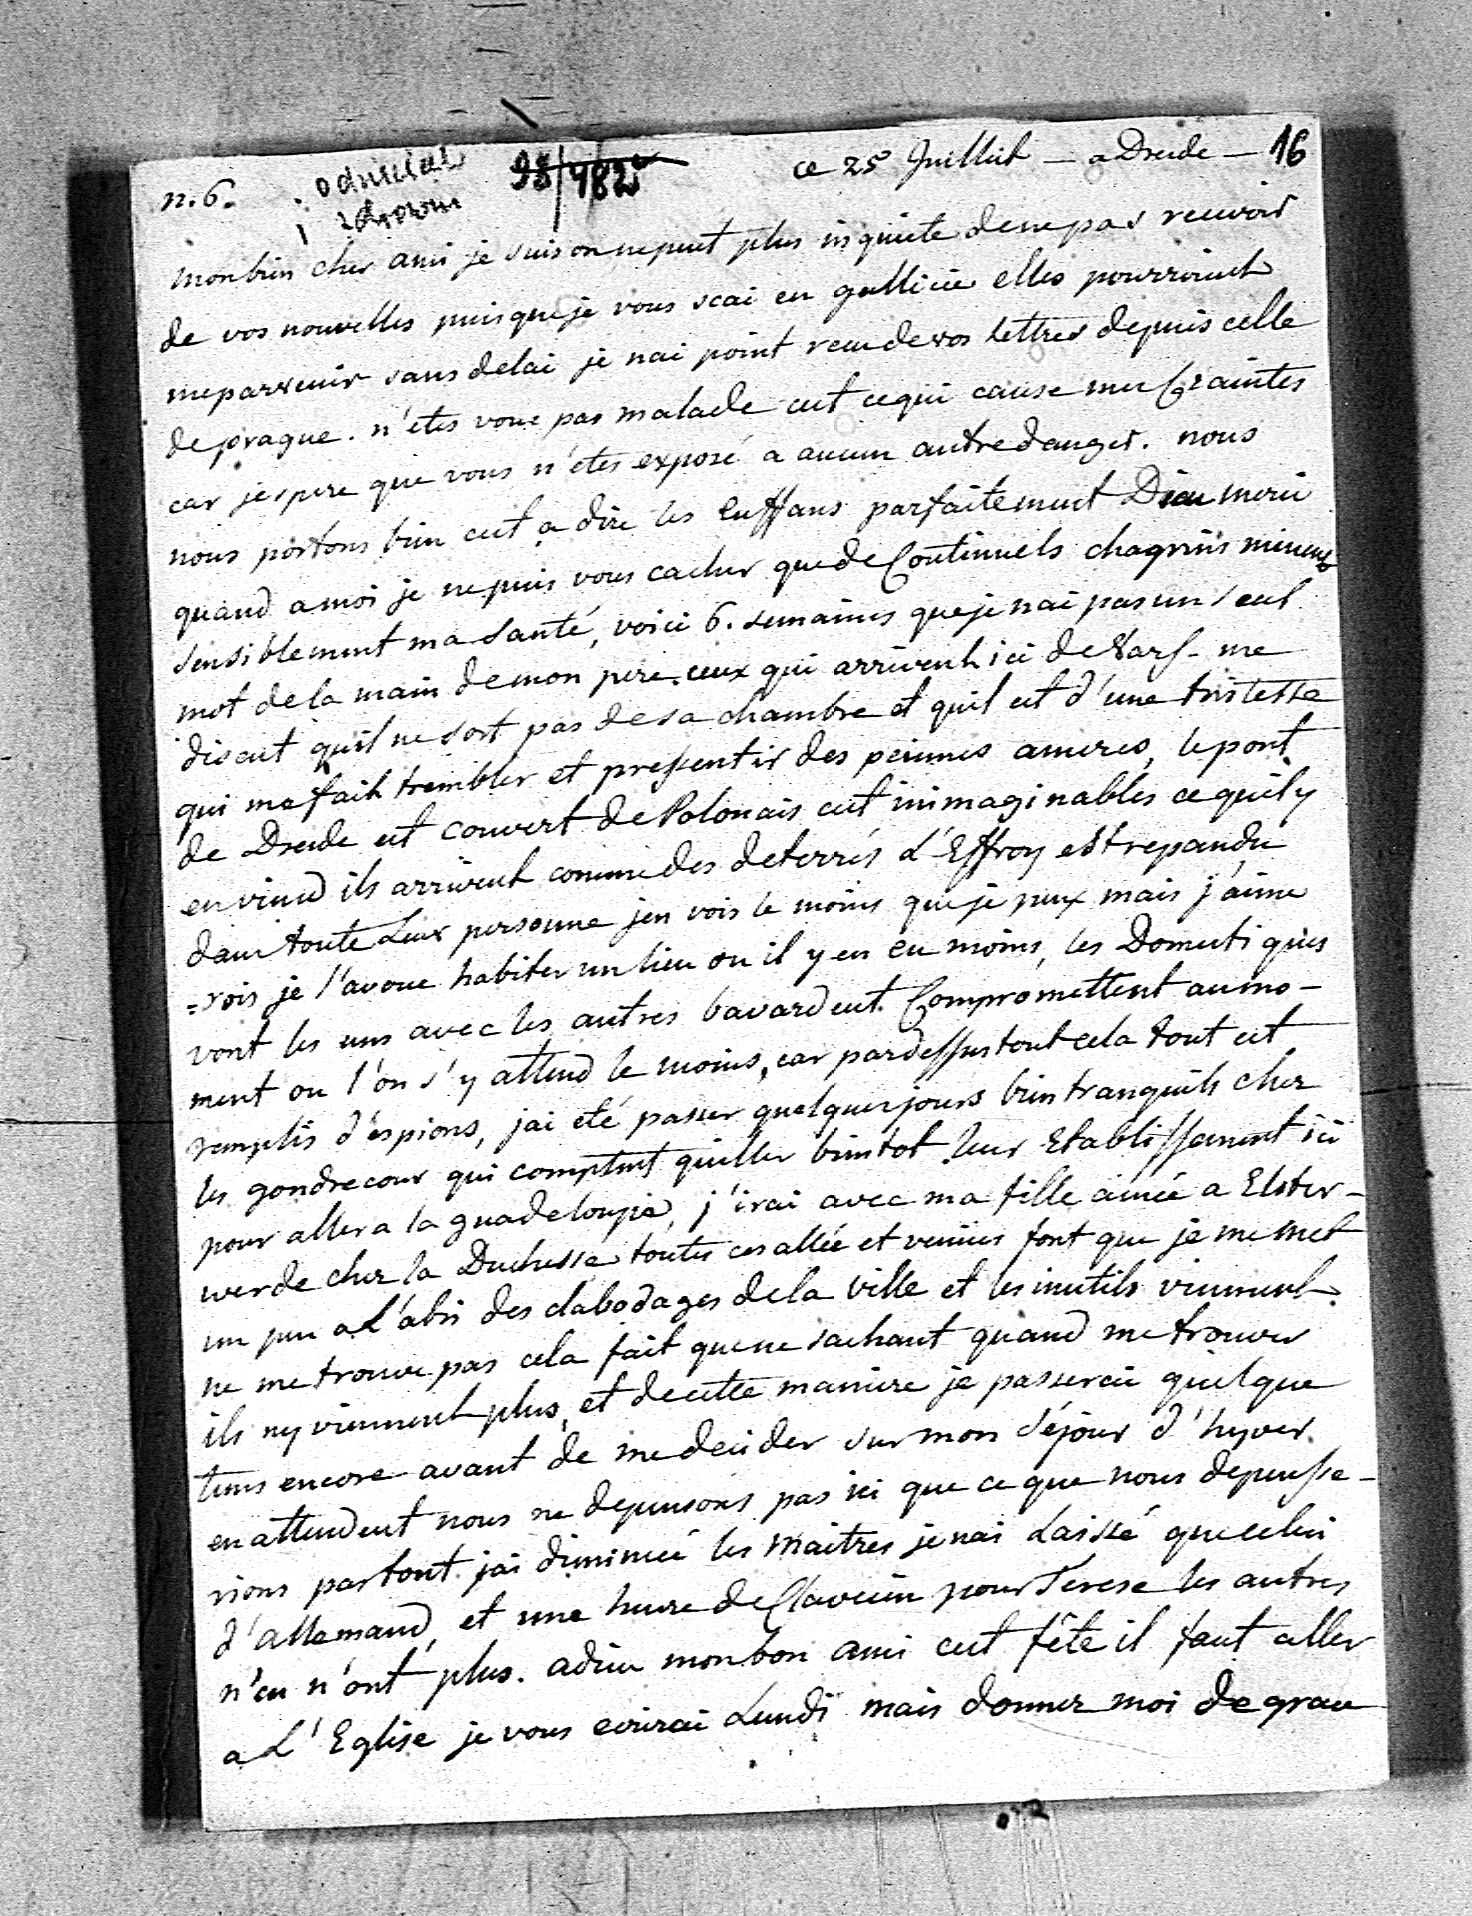 n. 6. 98/482 ce 25 Juillet – a Dresde – 16
mon bien cher ami je suis on ne peut plus inquiete de ne pas recevoir
de vos nouvelles puisque je vous scai en gallicie elles pourroient
me parvenir sans delai je nai point recu de vos lettres depuis celle
de prague. n'etes vous pas malade cest ce qui cause mes craintes
car jespere que vous n'etes exposé a aucun autre danger. nous
nous portons bien cest a dire les Enffans parfaitement Dieu merci
quand a moi je ne puis vous cacher que de Continuels chagrins minent
sensiblement ma santé, voici 6. semaines que je nai pas un seul
mot de la main de mon pere. ceux qui arrivent ici de Vars- me
disent quil ne sort pas de sa chambre et quil est d'une tristesse
qui me fait trembler et pressentir des peinnes ameres, le pont
de Dresde est couvert de Polonais cest inimaginables ce quil y
en viend ils arrivent comme des deterrés L'Effroy est repandu
dans toute Leur personne jen vois le moins que je peux mais j'aime
=rois je l'avoue habiter un lieu ou il y en eu moins, les Domestiques
vont les uns avec les autres bavardent. Compromettent au mo-
ment ou l'on s'y attend le moins, car pardessus tout cela tout est
remplis d'espions, jai eté passer quelques jours bien tranquils chez
les gondrecour qui comptent quitter bientot leur Etablissement ici
pour aller a la guadeloupe, j'irai avec ma fille ainée a Elster-
werde chez la Duchesse toutes ces allée et venües font que je me met
un peu a L'abri des clabodages de la ville et les inutils viennent
ne me trouve pas cela fait que ne sachant quand me trouver
ils ny viennent plus, et de cette maniere je passerai quelque
tems encore avant de me decider sur mon séjour d'hyver.
en attendent nous ne depensons pas ici que ce que nous depense-
rions partout. jai diminué les Maitres je nai Laissé que celui
d'allemand, et une heure de Clavecin pour Terese les autres
n'en n'ont plus. adieu mon bon ami cest fête il faut aller
a L'Eglise je vous ecrirai Lundi mais donnez moi de grace